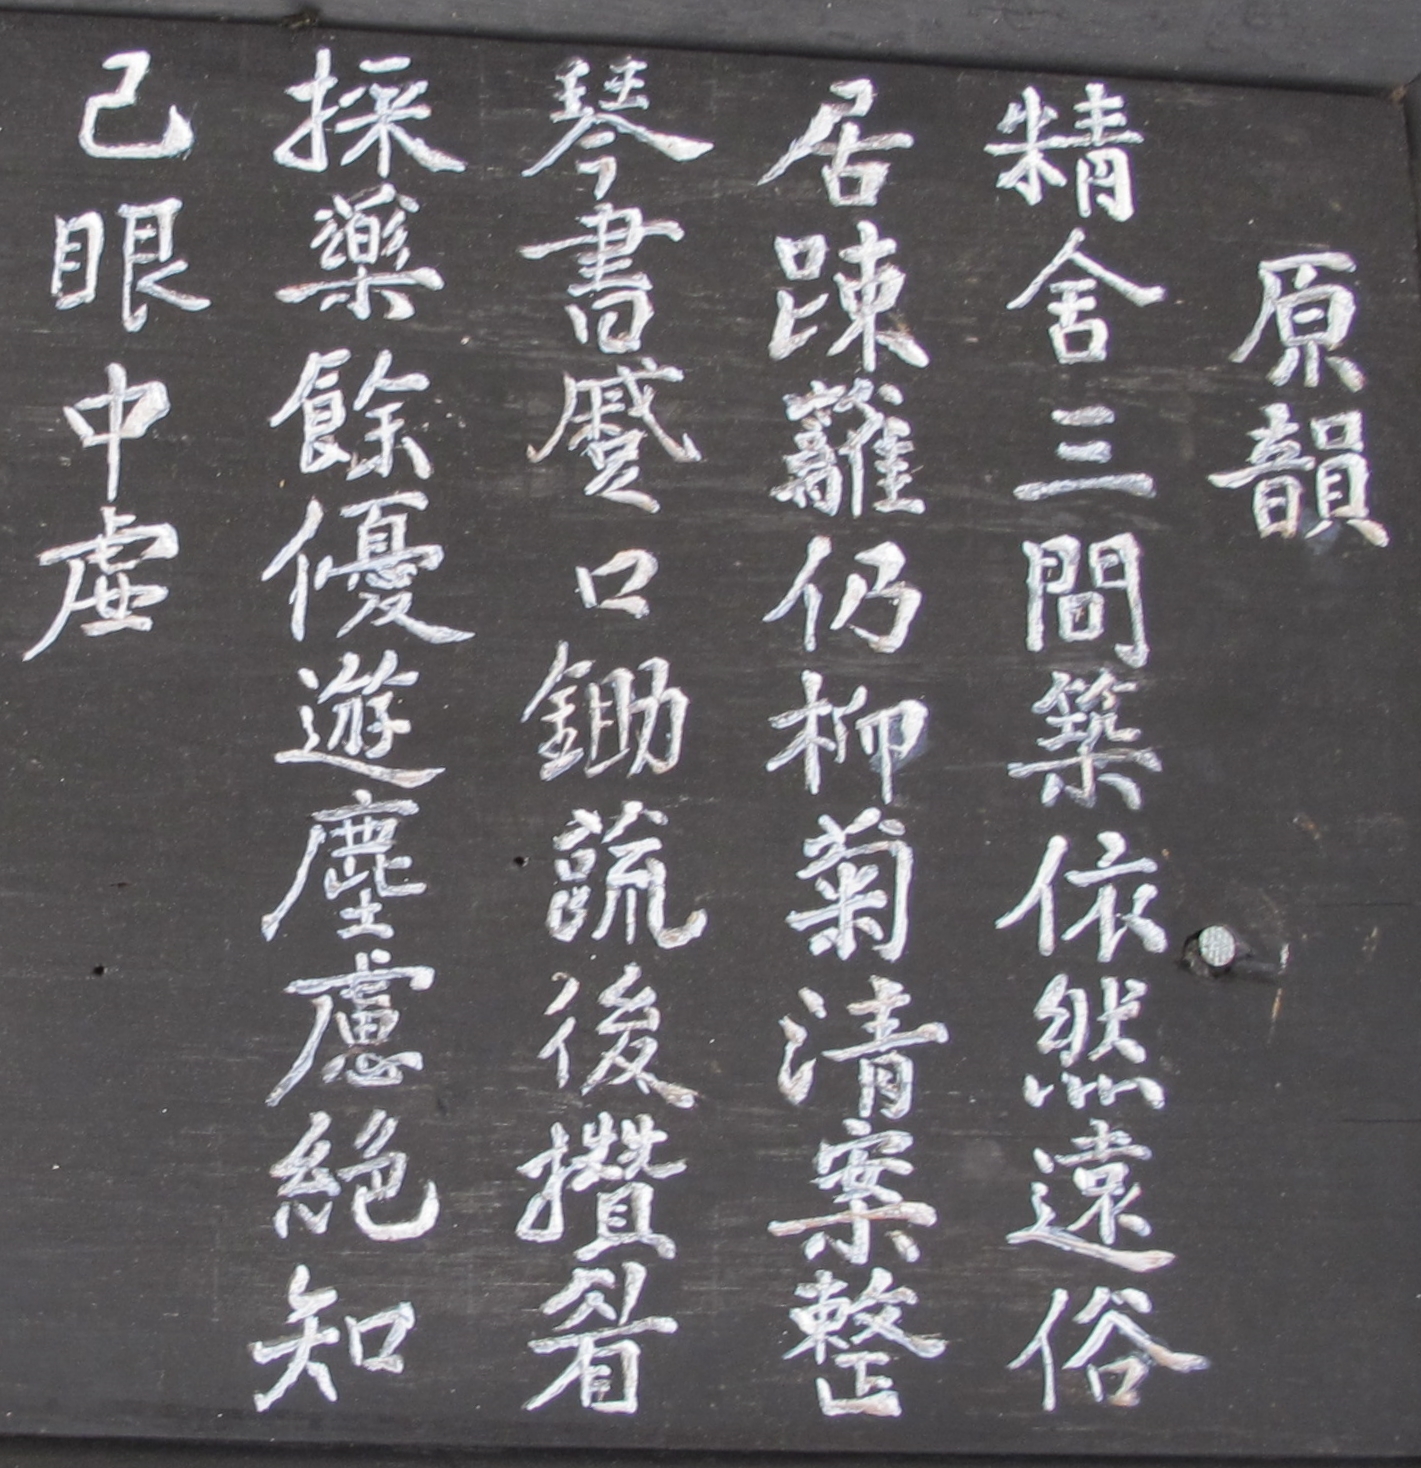 原韻
精舍三間築依然遠俗
居踈籬仍柳菊清案整
琴書蹙口鋤蔬後攢眉
採藥餘優遊塵慮絶知
己眼中虛